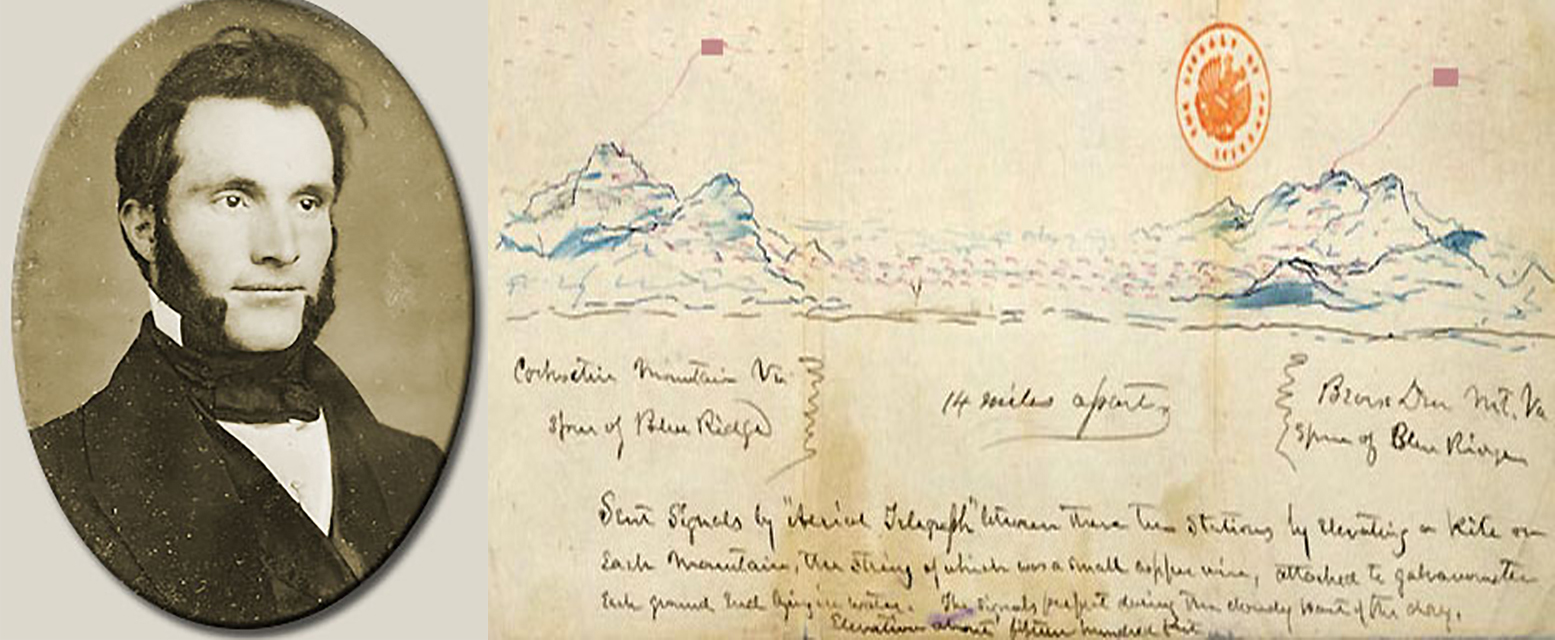 LIBRARY OF
Cohoctin Mountain Va
Spur of Blue Ridge
14 miles apart
Mt. Va
Spur of Blue Ridge
Sent Signals by "Aerial Telegraph" between these two stations by elevating a Kite on
Each Mountain, the string of which was a small copper wire, attached to galvanometer
Each ground End lying in water. The signals perfect during the cloudy part of the day.
Elevation about fifteen hundred feet